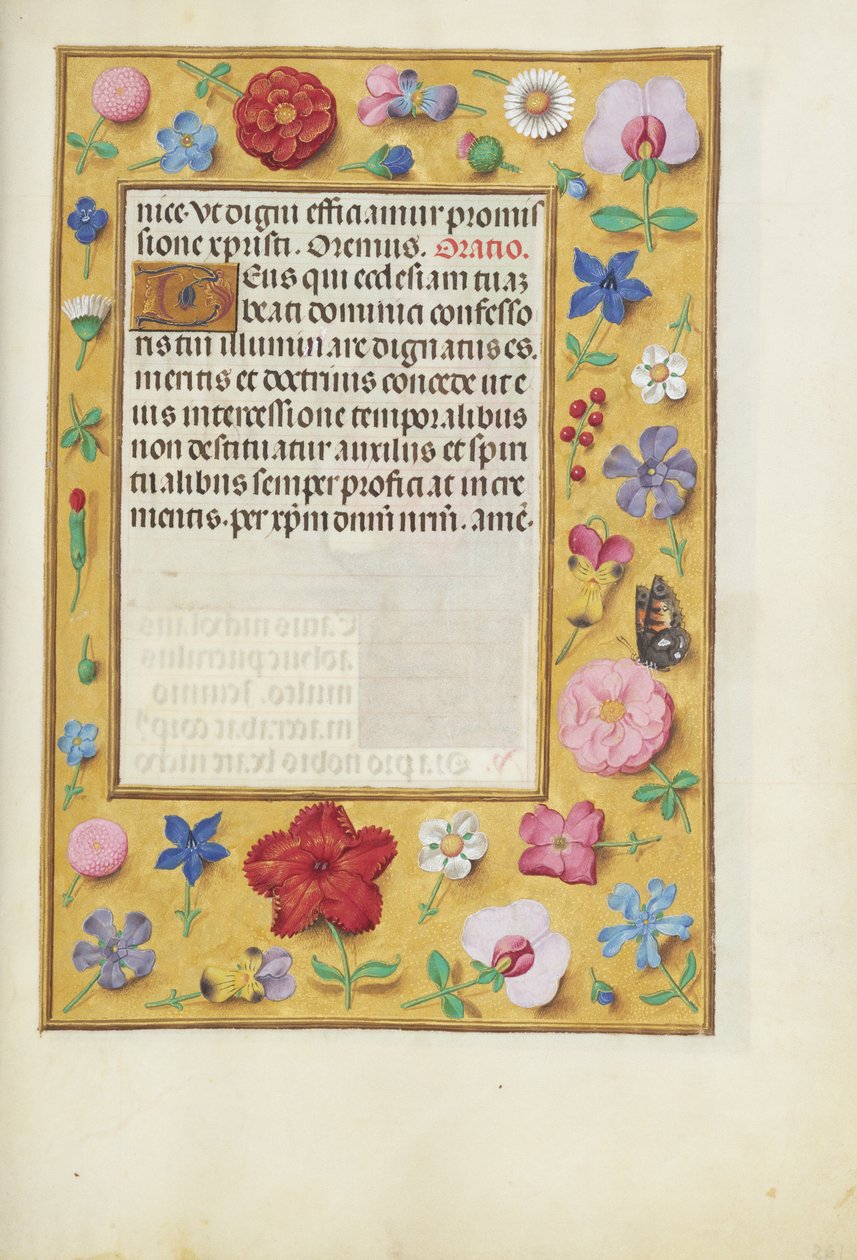 nice. Vt digni efficiamur promis
sione xpristi. Oremus. Oratio.
Deus qui ecclesiam tuaz
beati dominici confesso
ris tui illuminare dignatus es.
meritis et doctrinis concede ut e
ius intercessione temporalibus
non destituatur auxiliis et spiri
tualibus semper proficiat incre
mentis. per xp̄m dnm̄ nrm̄. amē.